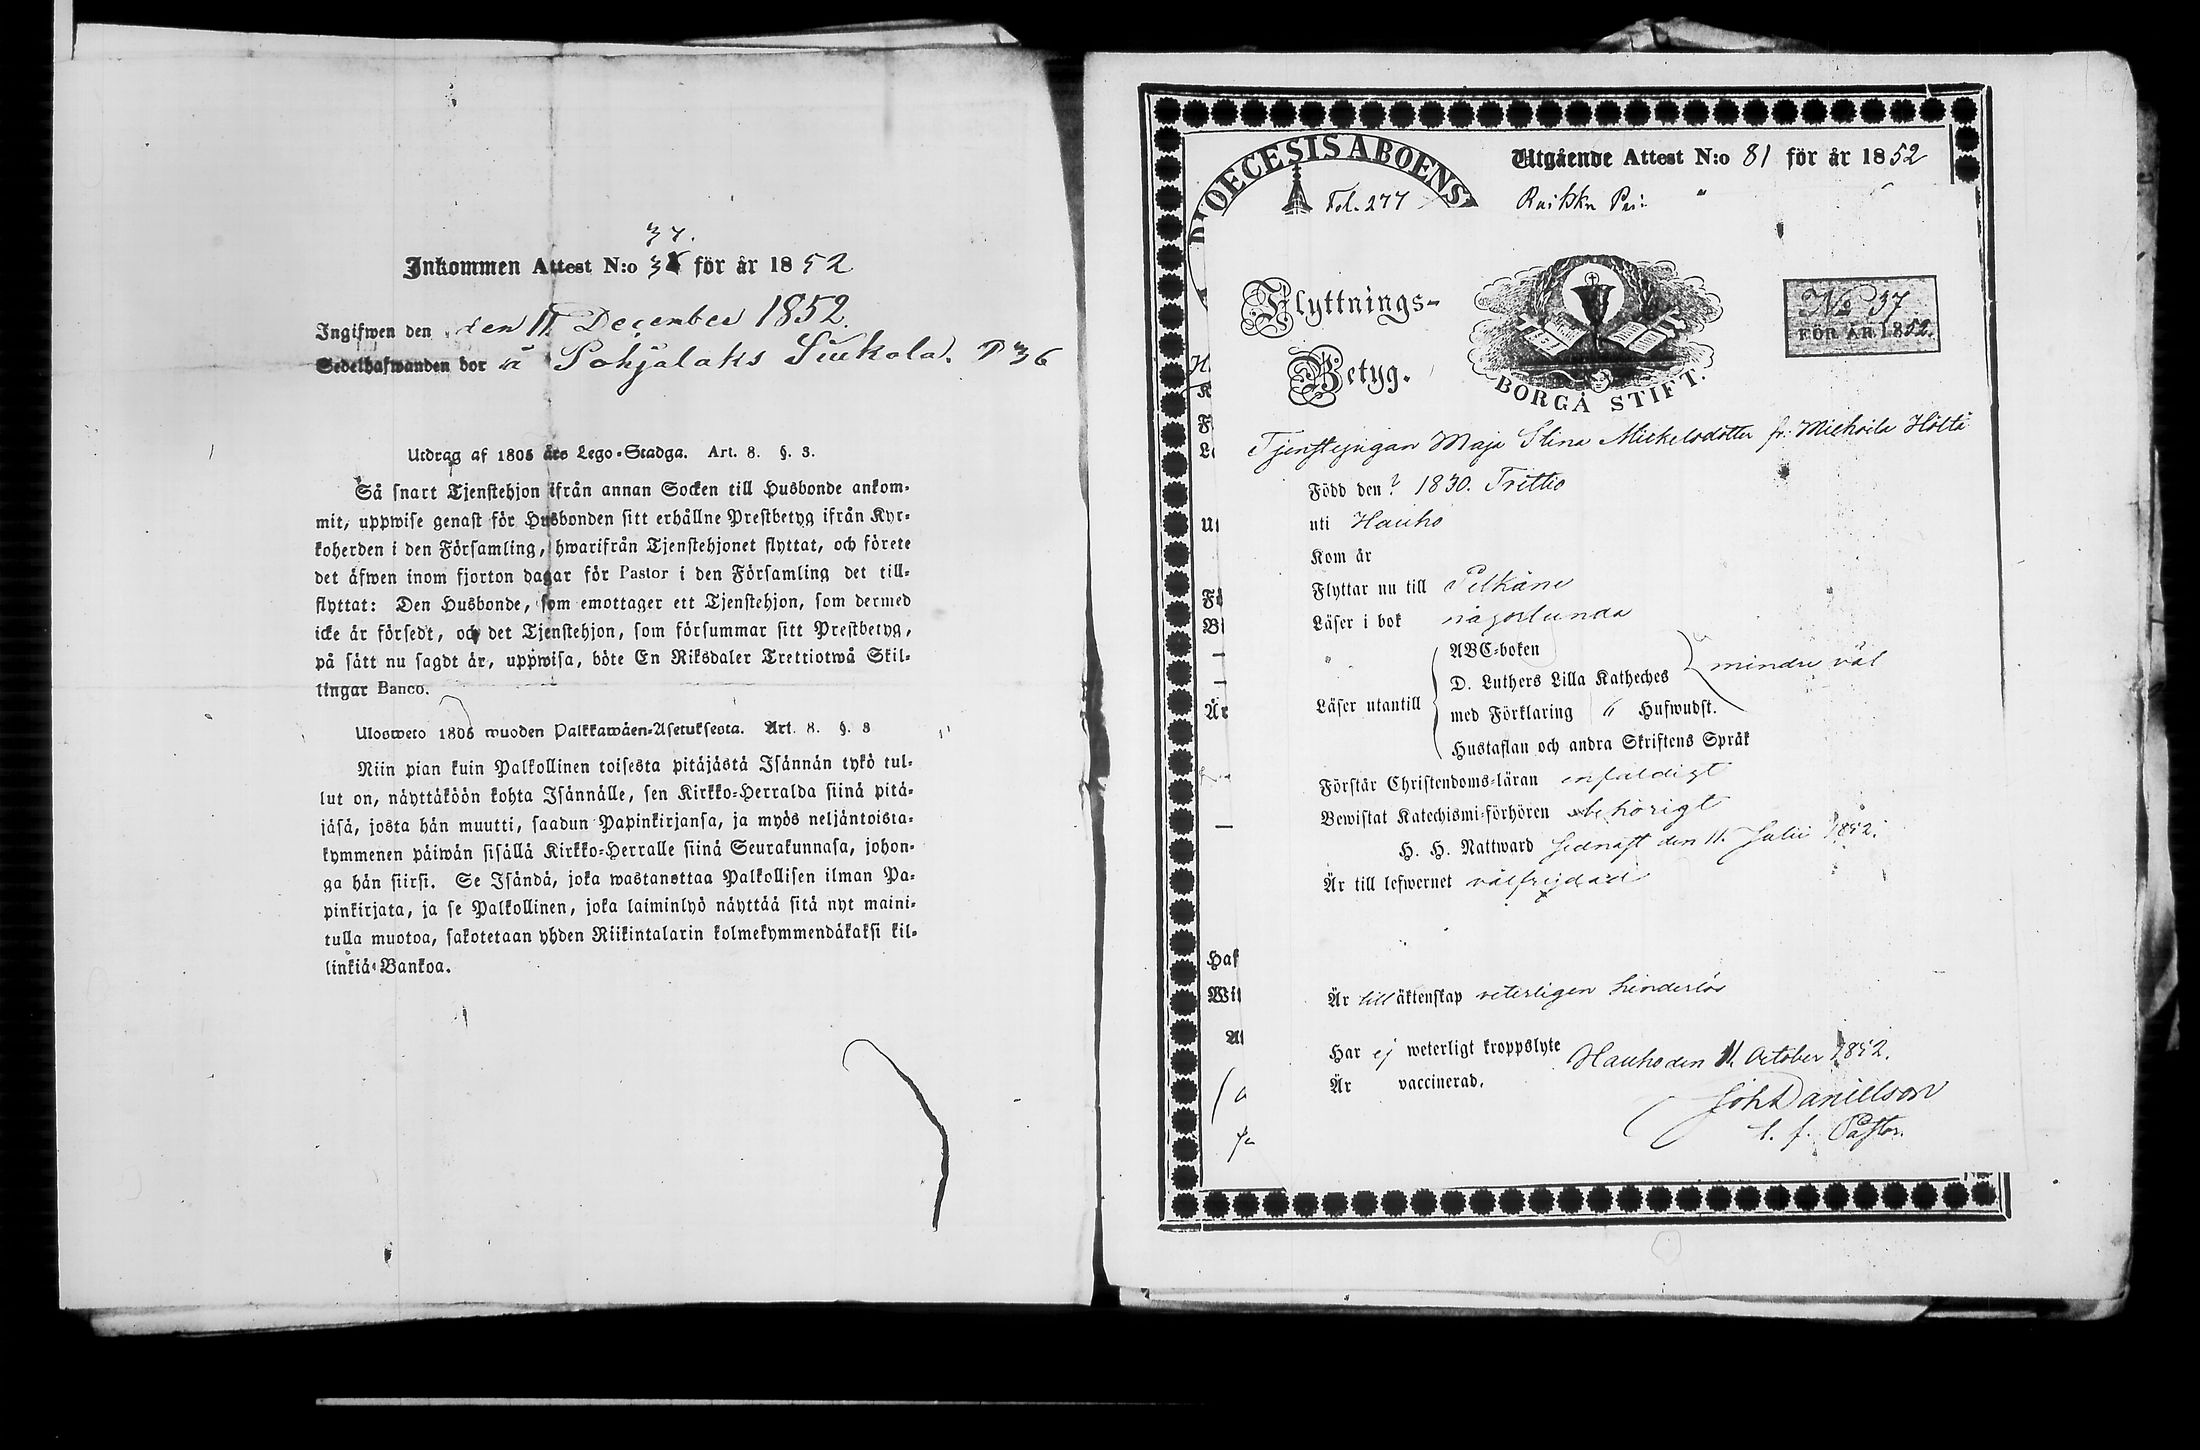 37.
Inkommen Attest N:o 38 för år 1852
Ingifwen den den 11 December 1852.
Sedelhafwanden bor å Pohjalaks Sukola. P 36
Utdrag af 1805 års Lego-Stadga. Art. 8. §. 3.
Så snart Tjenstehjon ifrån annan Socken till Husbonde ankom-
mit, uppwise genast för Husbonden sitt erhållne Prestbetyg ifrån Kyr-
koherden i den Församling, hwarifrån Tjenstehjonet flyttat, och förete
det äfwen inom fjorton dagar för Pastor i den Församling det till-
flyttat: Den Husbonde, som emottager ett Tjenstehjon, som dermed
icke är försedt, och det Tjenstehjon, som försummar sitt Prestbetyg,
på sätt nu sagdt är, uppwisa, böte En Riksdaler Trettiotwå Skil-
lingar Banco.
Ulosweto 1805 wuoden Palkkawäen-Asetuksesta. Art. 8. §. 3
Niin pian kuin Palkollinen toisesta pitäjästä Isännän tykö tul-
lut on, näyttäköön kohta Isännälle, sen Kirkko-Herralda siinä pitä-
jäsä, josta hän muutti, saadun Papinkirjansa, ja myös neljäntoista-
kymmenen päiwän sisällä Kirkko-Herralle siinä Seurakunnasa, johon-
ga hän siirsi. Se Isändä, joka wastanottaa Palkollisen ilman Pa-
pinkirjata, ja se Palkollinen, joka laiminlyö näyttää sitä nyt maini-
tulla muotoa, sakotetaan yhden Riikintalarin kolmekymmendäkaksi kil-
linkiä Bankoa.
DIOECESIS ABOENS.
Utgående Attest N:o 81 för år 1852
Fol. 277
Flyttnings-
Betyg.
BORGÅ STIFT.
No 37
FÖR ÅR 1852.
Tjenstepigan Maja Stina Mickelsdotter fr. Michoila Höltä
Född den ? 1830. Trettio
uti Hauho
Kom år
Flyttar nu till Pelkäne
Läser i bok någorlunda
Läser utantill
ABC-boken
D. Luthers Lilla Katheches
med Förklaring " Hufwudst.
Hustaflan och andra Skriftens Språk
mindre väl
Förstår Christendoms-läran enfaldigt
Bewistat Katechismi-förhören behörigt
H. H. Nattward sednast den 11. Julii 1852.
Är till lefwernet välfrejdad
Är till äktenskap veterligen hinderlös
Har ej weterligt kroppslyte
Är vaccinerad.
Hauho den 11. October 1852.
Joh Danielson
t. f. Pastor.